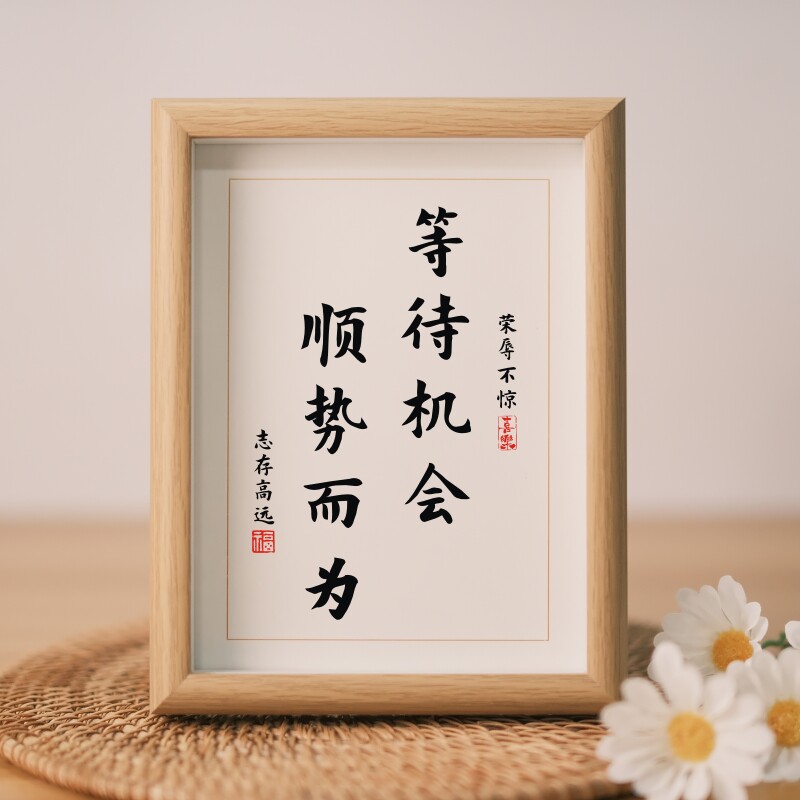 荣辱不惊
喜樂
等待机会
顺势而为
志存高远
福